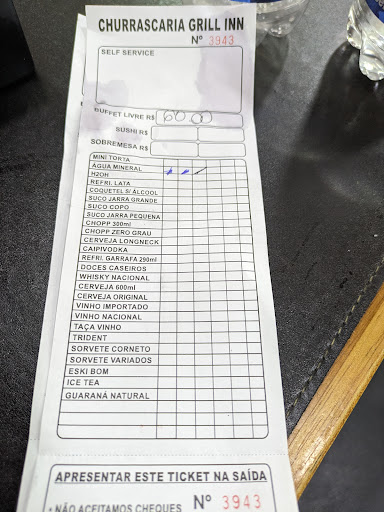 CHURRASCARIA GRILL INN
Nº 3943
SELF SERVICE
BUFFET LIVRE R$ 60 0
SUSHI R$
SOBREMESA R$
MINI TORTA
ÁGUA MINERAL
H2OH
REFRI. LATA
COQUETEL S/ ÁLCOOL
SUCO JARRA GRANDE
SUCO COPO
SUCO JARRA PEQUENA
CHOPP 300ml
CHOPP ZERO GRAU
CERVEJA LONGNECK
CAIPIVODKA
REFRI. GARRAFA 290ml
DOCES CASEIROS
WHISKY NACIONAL
CERVEJA 600ml
CERVEJA ORIGINAL
VINHO IMPORTADO
VINHO NACIONAL
TAÇA VINHO
TRIDENT
SORVETE CORNETO
SORVETE VARIADOS
ESKI BOM
ICE TEA
GUARANÁ NATURAL
APRESENTAR ESTE TICKET NA SAÍDA
Nº 3943
• NÃO ACEITAMOS CHEQUES